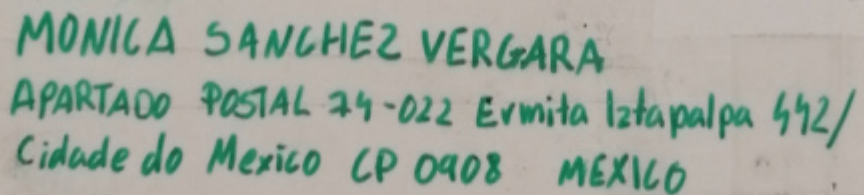 MONICA SANCHEZ VERGARA
APARTADO POSTAL 74-022 Ermita Iztapalpa 442/
Cidade do Mexico CP 0908 MEXICO